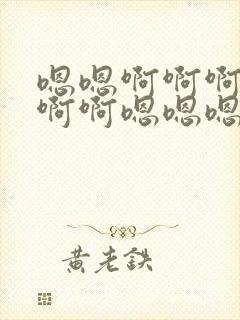 嗯嗯啊啊啊
啊啊嗯嗯嗯
黄老鉄